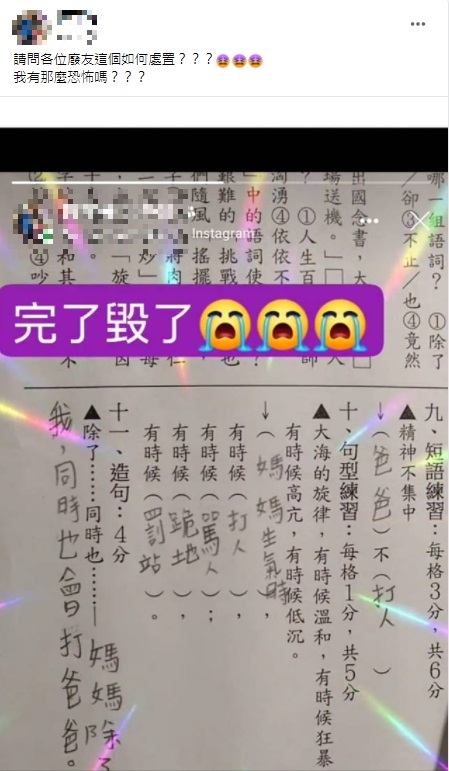 請問各位廢友這個如何處置？？？😫😫😫
我有那麼恐怖嗎？？？
Instagram
完了毀了😭😭😭
哪一組語詞？ ①除了
／卻③不止／也④竟然
出國念書，大
人
場送機。」□
？ ①人生百
師
洶湧④依依不
」中的語詞使
？
艱難的挑戰
也
們隨風搖擺
九、短語練習：每格3分，共6分
▲精神不集中
↓（爸爸）不（打人）
十、句型練習：每格1分，共5分
▲大海的旋律，有時候溫和，有時候狂暴
有時候高亢，有時候低沉。
↓（媽媽生氣時
有時候（打人），
有時候（罵人）；
有時候（跪地），
有時候（罰站）。
十一、造句：4分
▲除了……同時也……—媽媽除了
我，同時也會打爸爸。